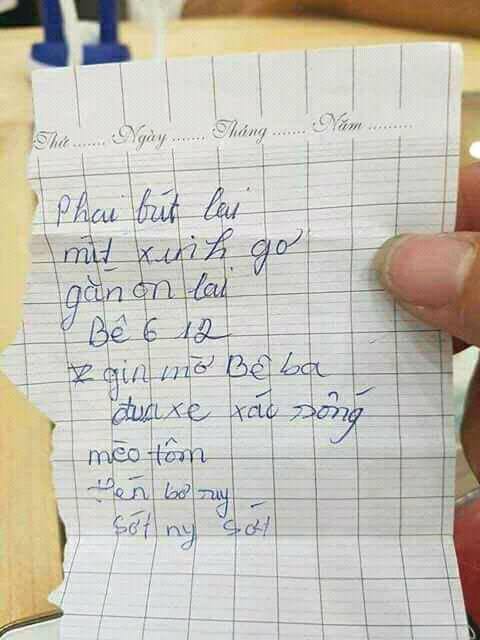 Thứ ...... Ngày ....... Tháng ...... Năm .........
Phai bút lai
mít xinh gơ
gằn on lai
Bê 6 12
gin mơ Bê ba
đua xe xác sống
mèo tôm
ten bơ ruy
Sót ny sót